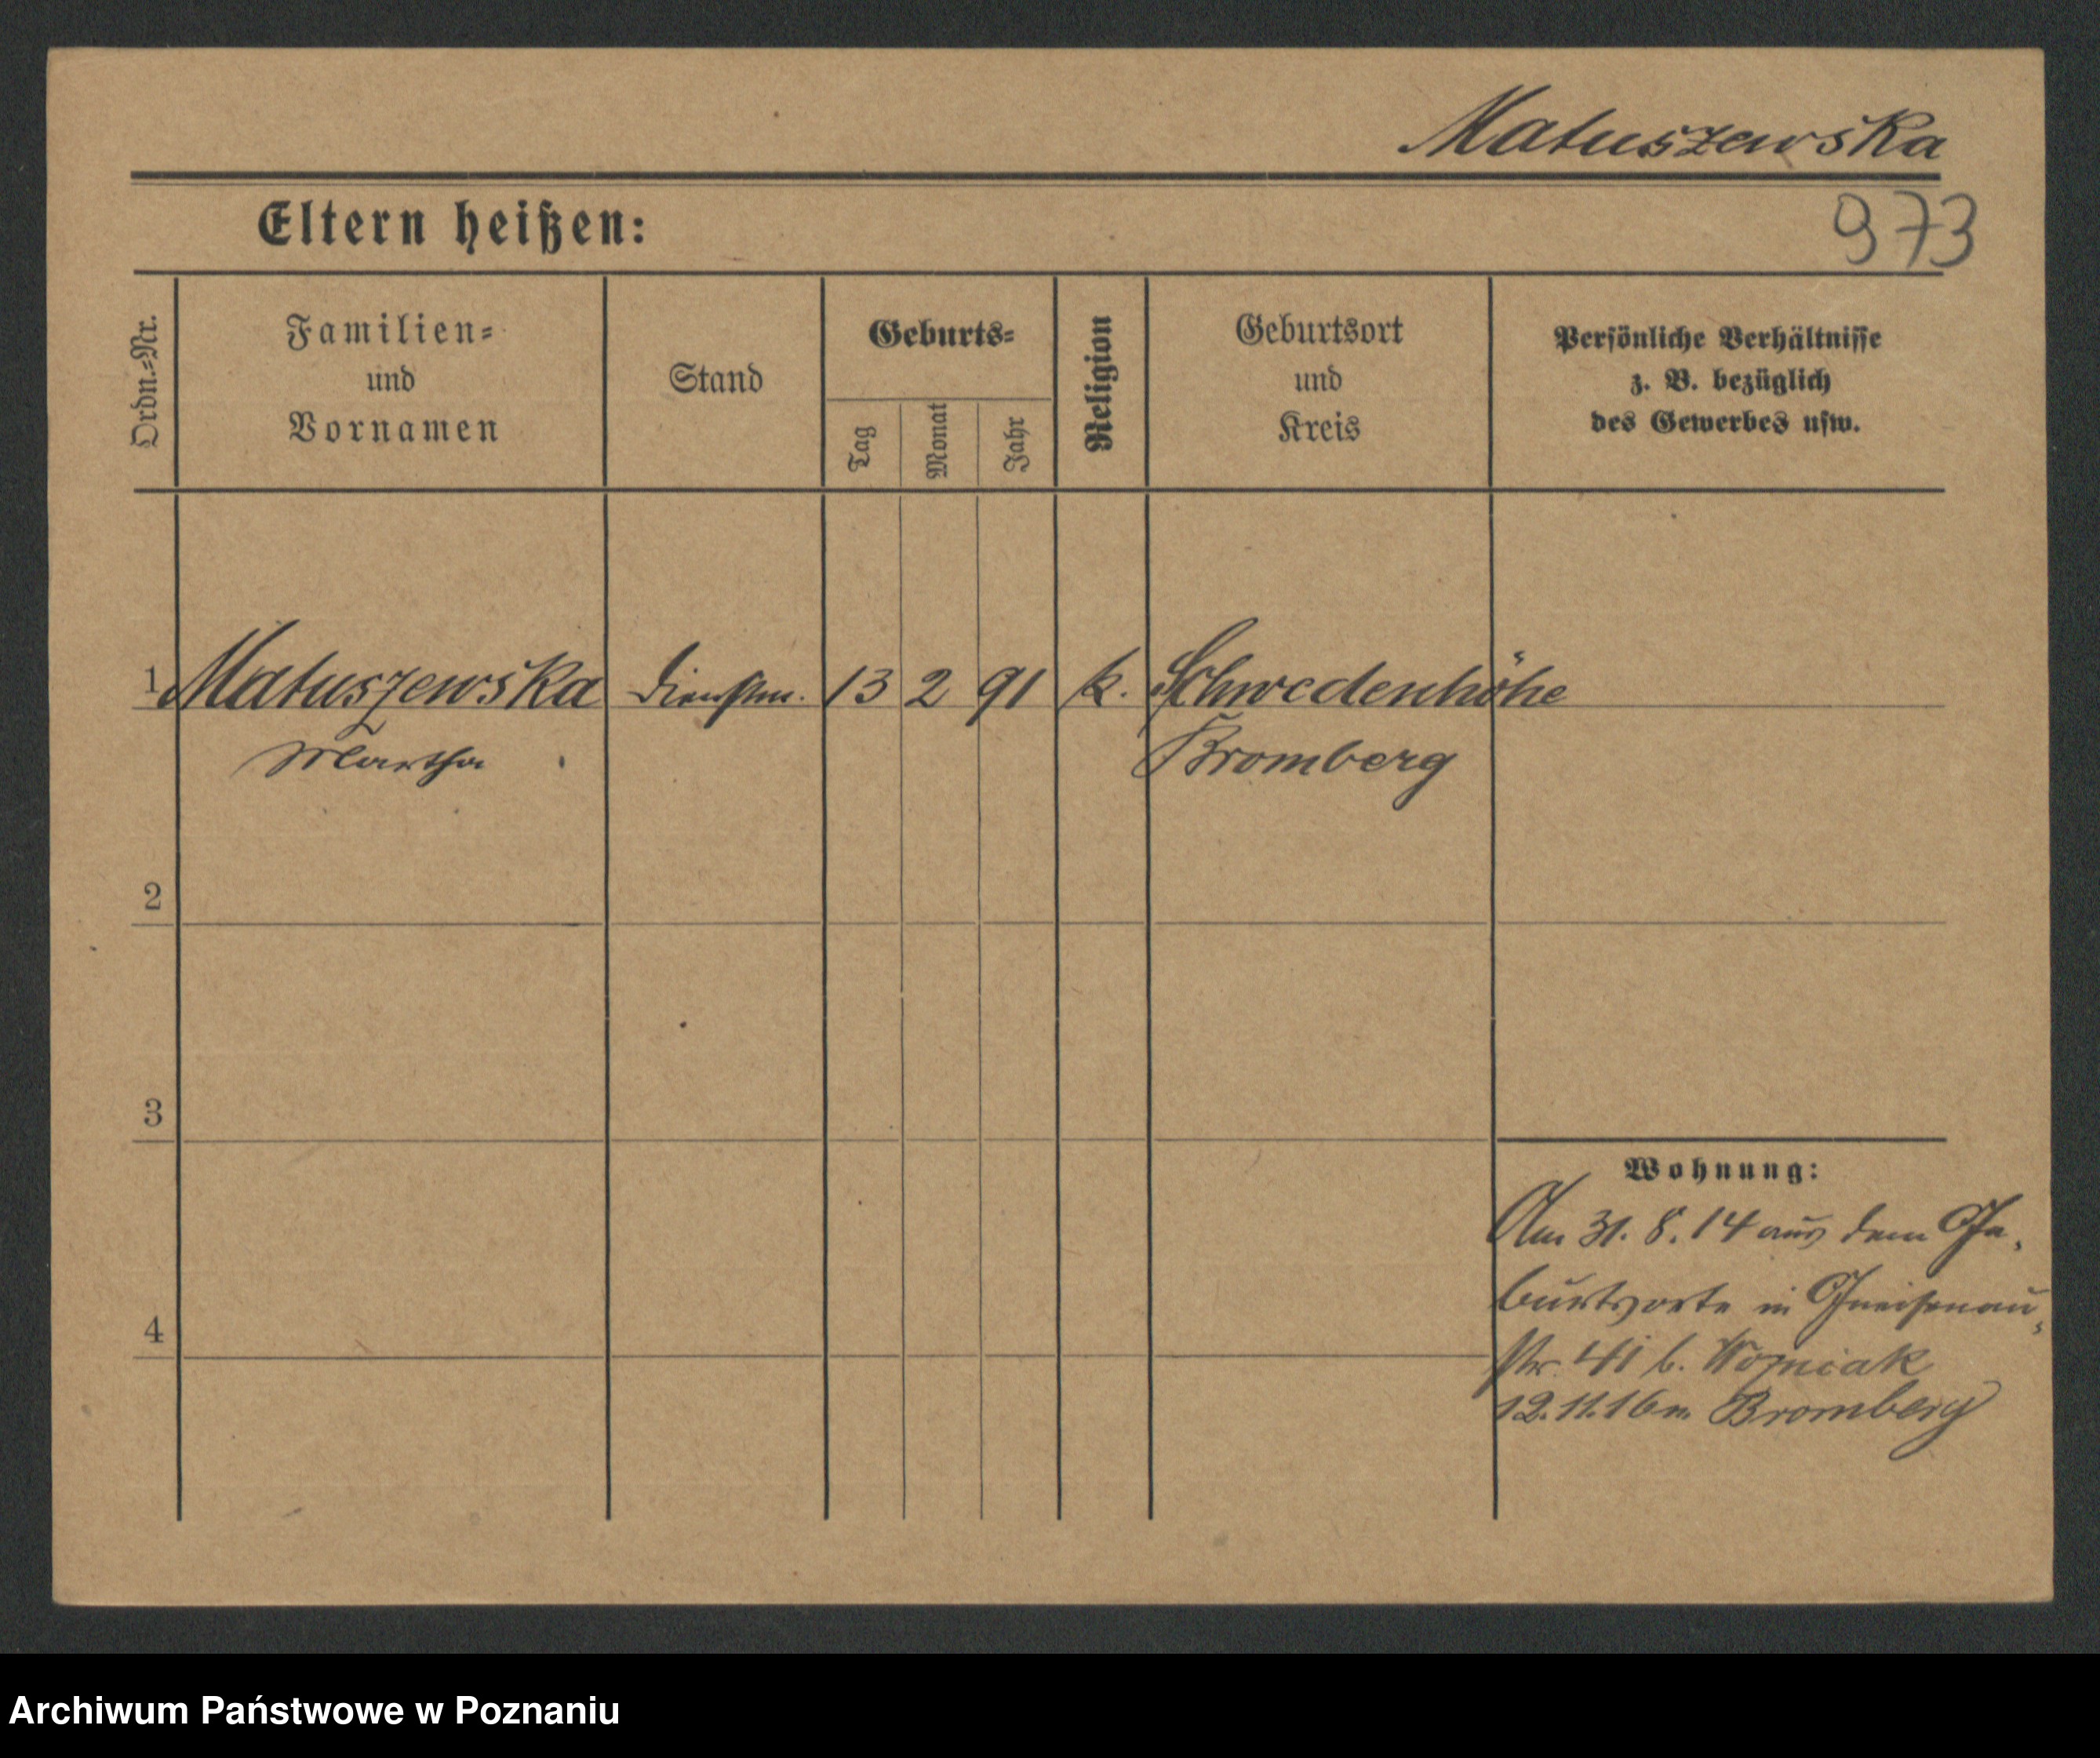 Matuszewska
Eltern heißen:
973
Ordn.=Nr.
Familien=
und
Vornamen
Stand
Geburts=
Tag
Monat
Jahr
Religion
Geburtsort
und
Kreis
Persönliche Verhältnisse
z. B. bezüglich
des Gewerbes usw.
1 Matuszewska Dienstm. 13 2 91 k. Schwedenhöhe
Martha Bromberg
2
3
Wohnung:
Am 31. 8. 14 aus dem Ge-
burtsorte in Gneisenau-
4
str. 41 b. Wozniak
12.11.16 n. Bromberg
Archiwum Państwowe w Poznaniu